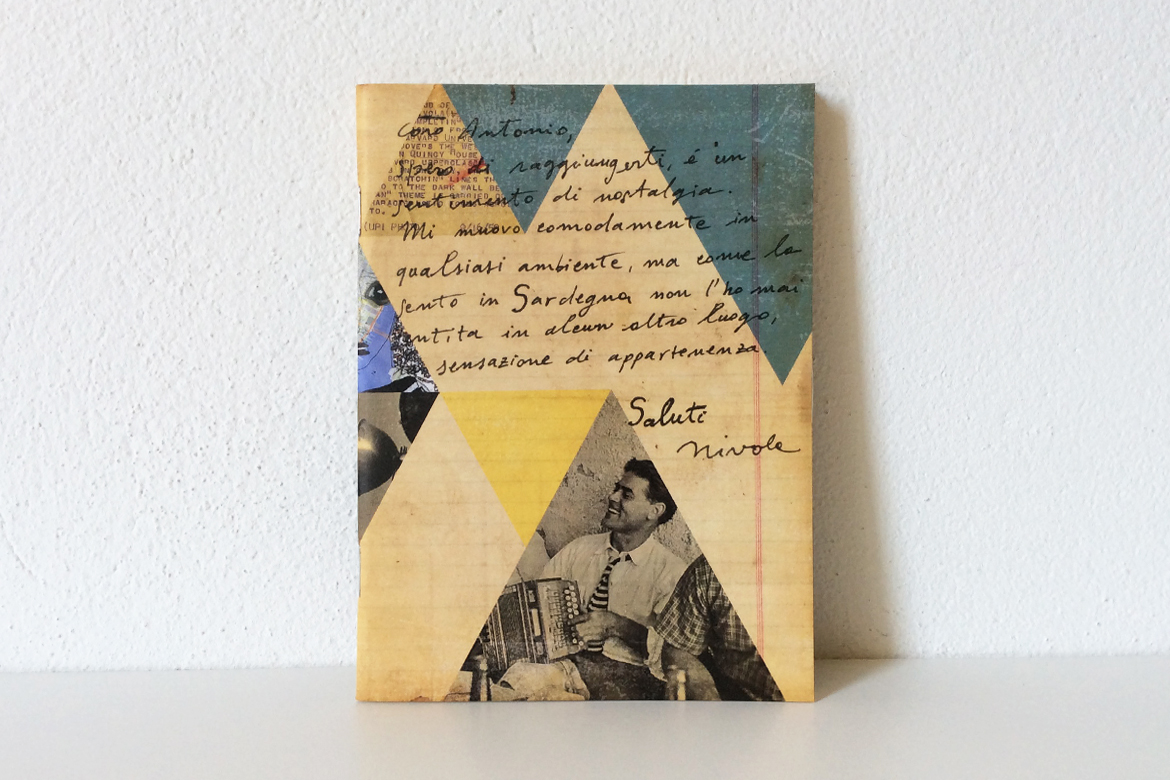 Caro Antonio,
spero di raggiungerti, é un
sentimento di nostalgia.
Mi muovo comodamente in
qualsiasi ambiente, ma come la
sento in Sardegna non l'ho mai
sentita in alcun altro luogo,
sensazione di appartenenza.
Saluti
Nivola
JOB OF
QUINCY HOUSE
SCRATCHIN" LINES TH
O TO THE DARK WALL BE
AN" THEME IS CARRIED O
TO.
(UPI